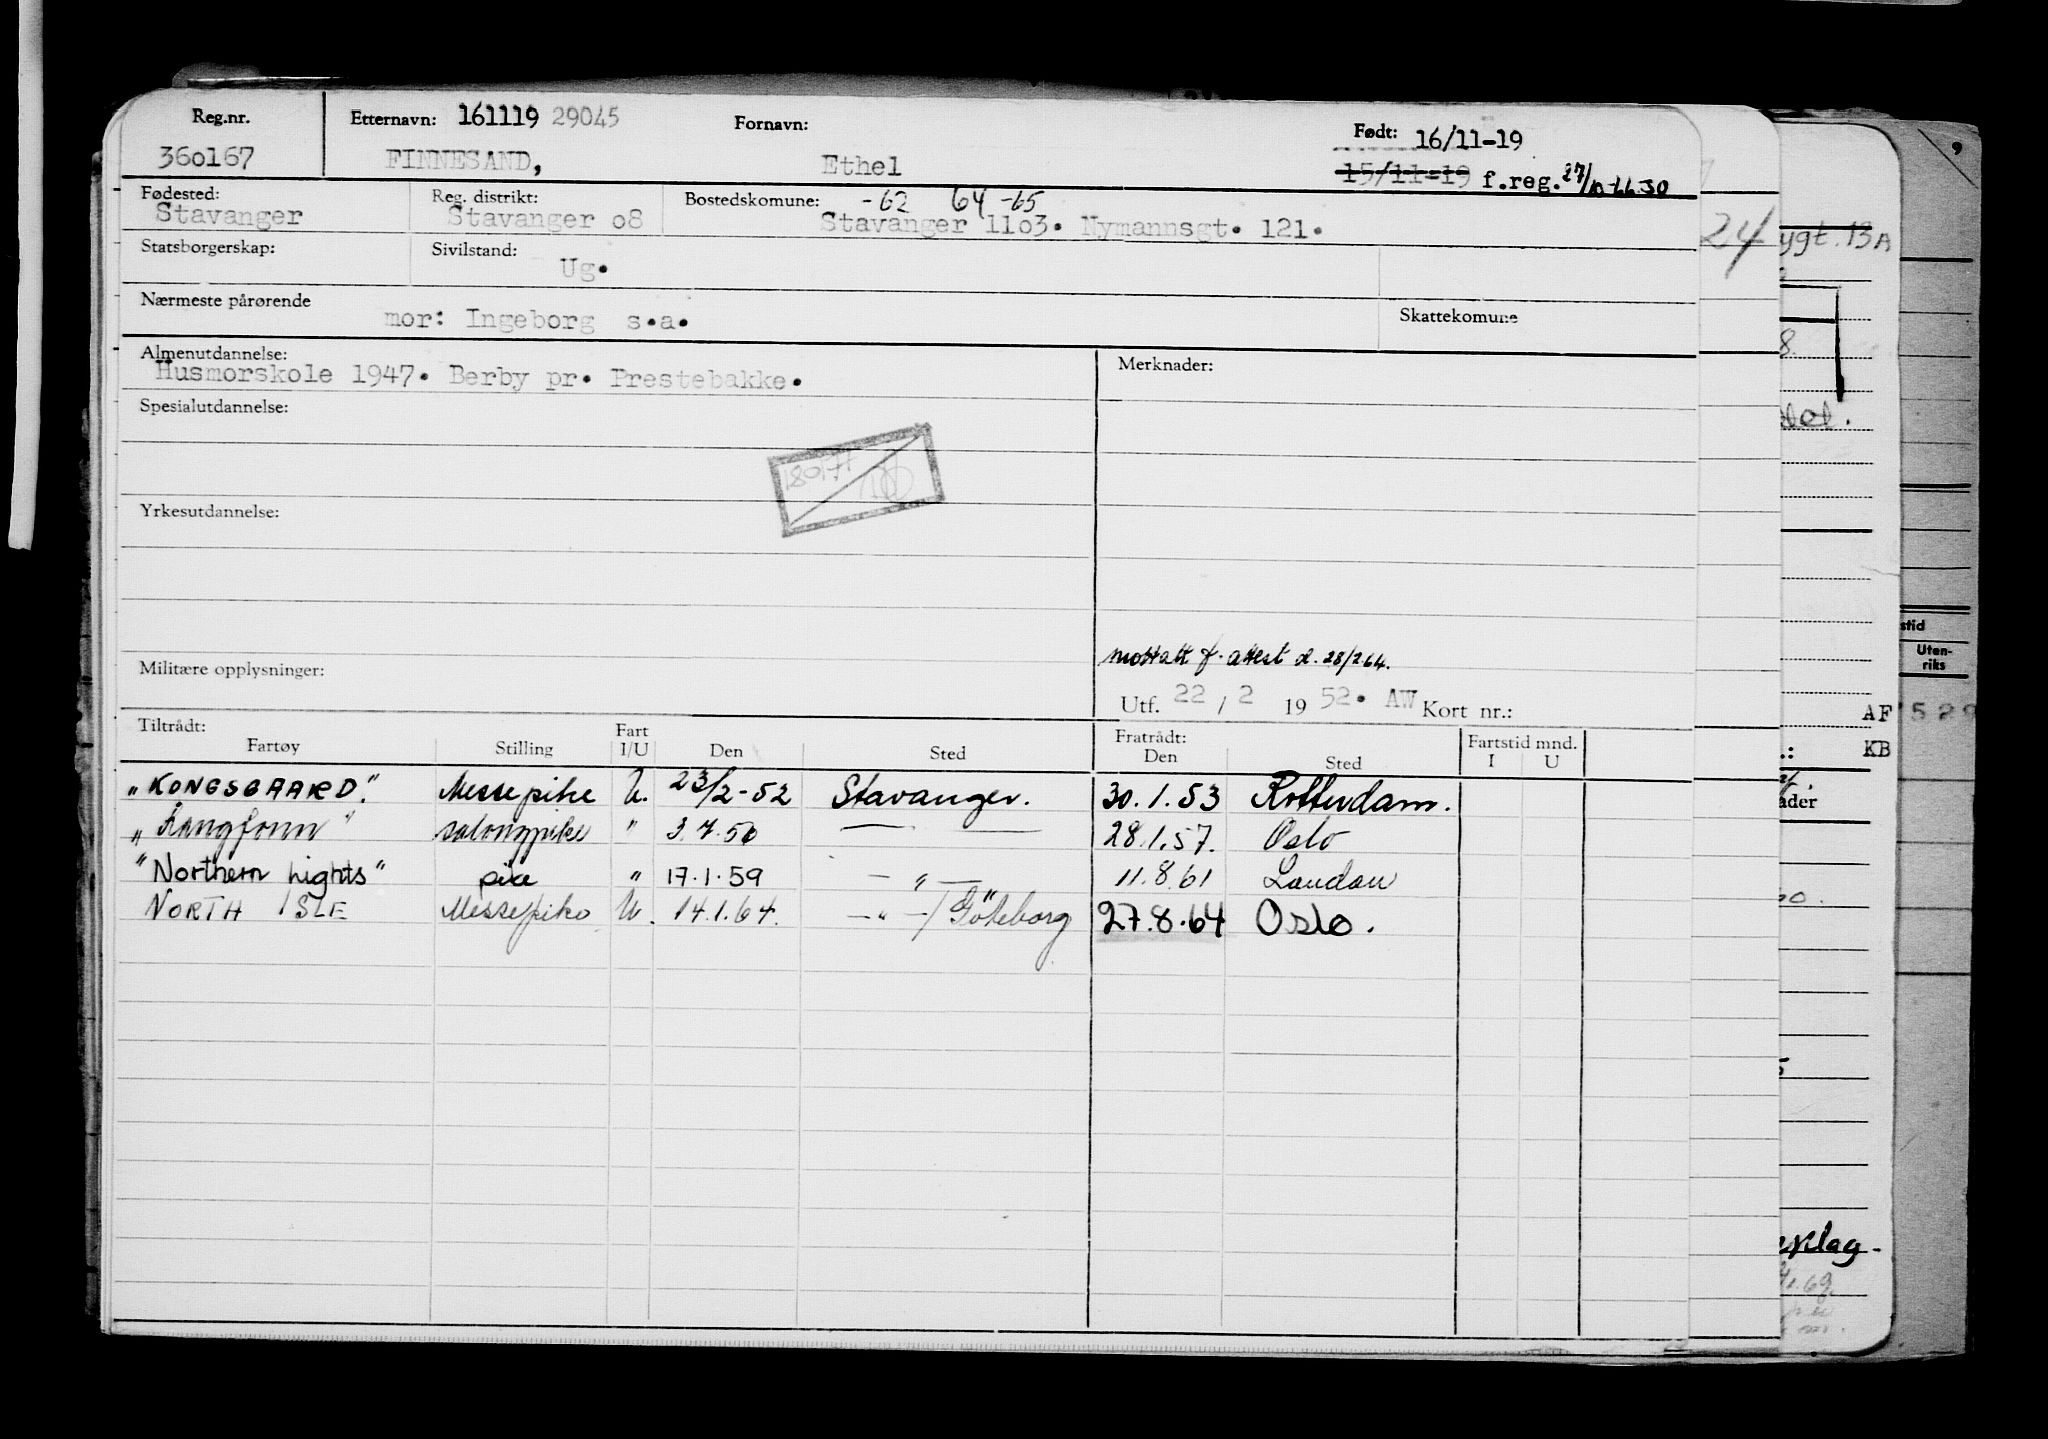 Reg.nr. Etternavn: 161119 29045 Fornavn: Født: 16/11-19
360167 FINNESAND, Ethel 15/11-19 f.reg. 27/10-66.SO
Fødested: Reg. distrikt: Bostedskomune: -62 64-65
Stavanger Stavanger o8 Stavanger 11o3. Nymannsgt. 121.
24 ygt. 13A
Statsborgerskap: Sivilstand:
Ug.
Nærmeste pårørende Skattekomune
mor: Ingeborg s.a.
Almenutdannelse: Merknader:
Husmorskole 1947. Berby pr. Prestebakke.
Spesialutdannelse:
Yrkesutdannelse:
mottatt f. attest d. 28/2 64.
Militære opplysninger:
Utf. 22 / 2 19 52. AW Kort nr.:
AF
KB
stid
Uten-
riks
Tiltrådt: Fratrådt:
Fartøy Stilling Fart I/U Den Sted Den Sted Fartstid mnd. I U
"KONGSGAARD". Messepike U. 23/2-52 Stavanger. 30.1.53 Rotterdam.
"Langfonn" salongpike " 3.7.56 — — 28.1.57. Oslo
"Northern Lights" pike " 17.1.59 — " — 11.8.61 Landau
NORTH ISLE Messepike U. 14.1.64. — " — / Göteborg 27.8.64 Oslo.